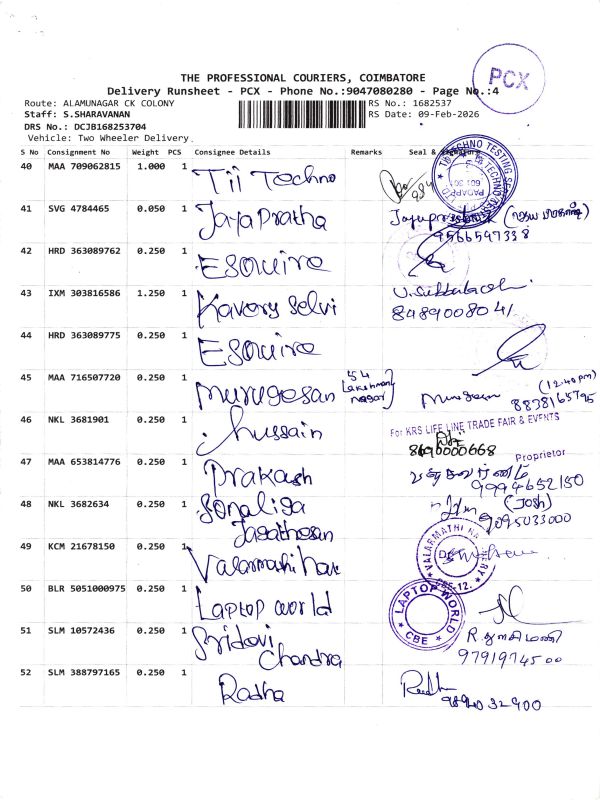 PCX
THE PROFESSIONAL COURIERS, COIMBATORE
Delivery Runsheet - PCX - Phone No.:9047080280 - Page No.:4
Route: ALAMUNAGAR CK COLONY
RS No.: 1682537
Staff: S.SHARAVANAN
RS Date: 09-Feb-2026
DRS No.: DCJB168253704
Vehicle: Two Wheeler Delivery
S No Consignment No Weight PCS Consignee Details Remarks Seal &
40 MAA 709062815 1.000 1 Tii Techno
41 SVG 4784465 0.050 1 JayaPratha
9566597338
42 HRD 363089762 0.250 1 Esquire
43 IXM 303816586 1.250 1 Kavery Selvi
8489008041
44 HRD 363089775 0.250 1 Esquire
45 MAA 716507720 0.250 1 Murugesan 54 Lakshmanj nagar (12:40pm)
8838165795
46 NKL 3681901 0.250 1 hussain
For KRS LIFE LINE TRADE FAIR & EVENTS
8610000668
Proprietor
47 MAA 653814776 0.250 1 Prakash
9994652150
48 NKL 3682634 0.250 1 Sonaliga Jagathesan (Josh)
9095033000
49 KCM 21678150 0.250 1 Valarmathi
VALARMATHI
CBE-12.
50 BLR 5051000975 0.250 1 Laptop world
LAPTOP WORLD
CBE
51 SLM 10572436 0.250 1 Sridevi Chandra R.துளசிமணி
9791974500
52 SLM 388797165 0.250 1 Radha
9894032900